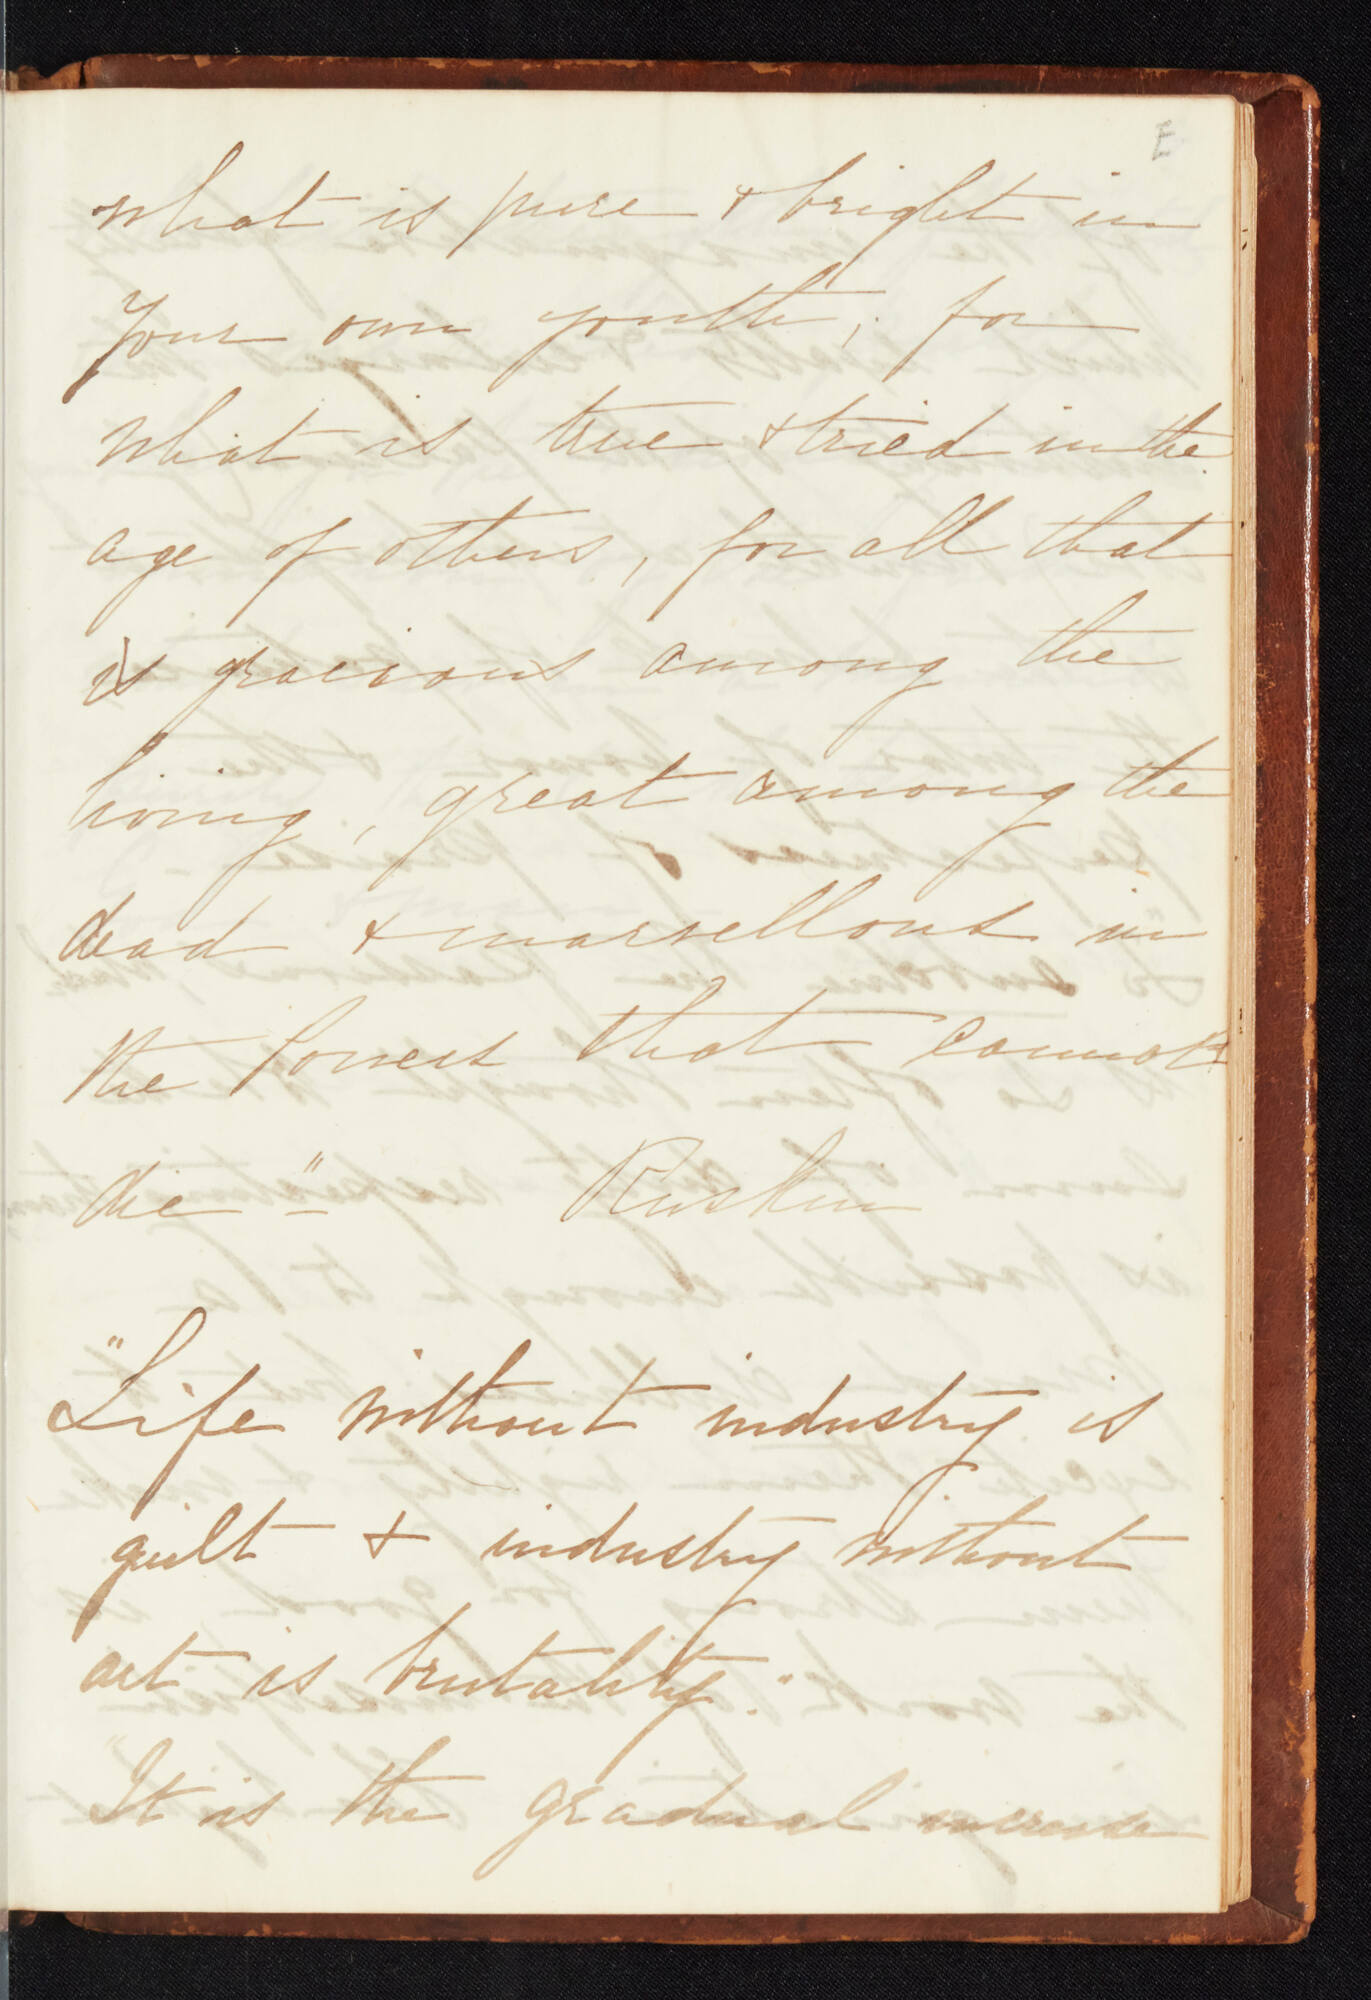 E
what is pure & bright in
your own youth, for
what is true & tried in the
age of others, for all that
is gracious among the
living, great among the
dead & marvellous in
the Powers that cannot
die" Ruskin
"Life without industry is
guilt & industry without
art is brutality."
"It is the gradual increase